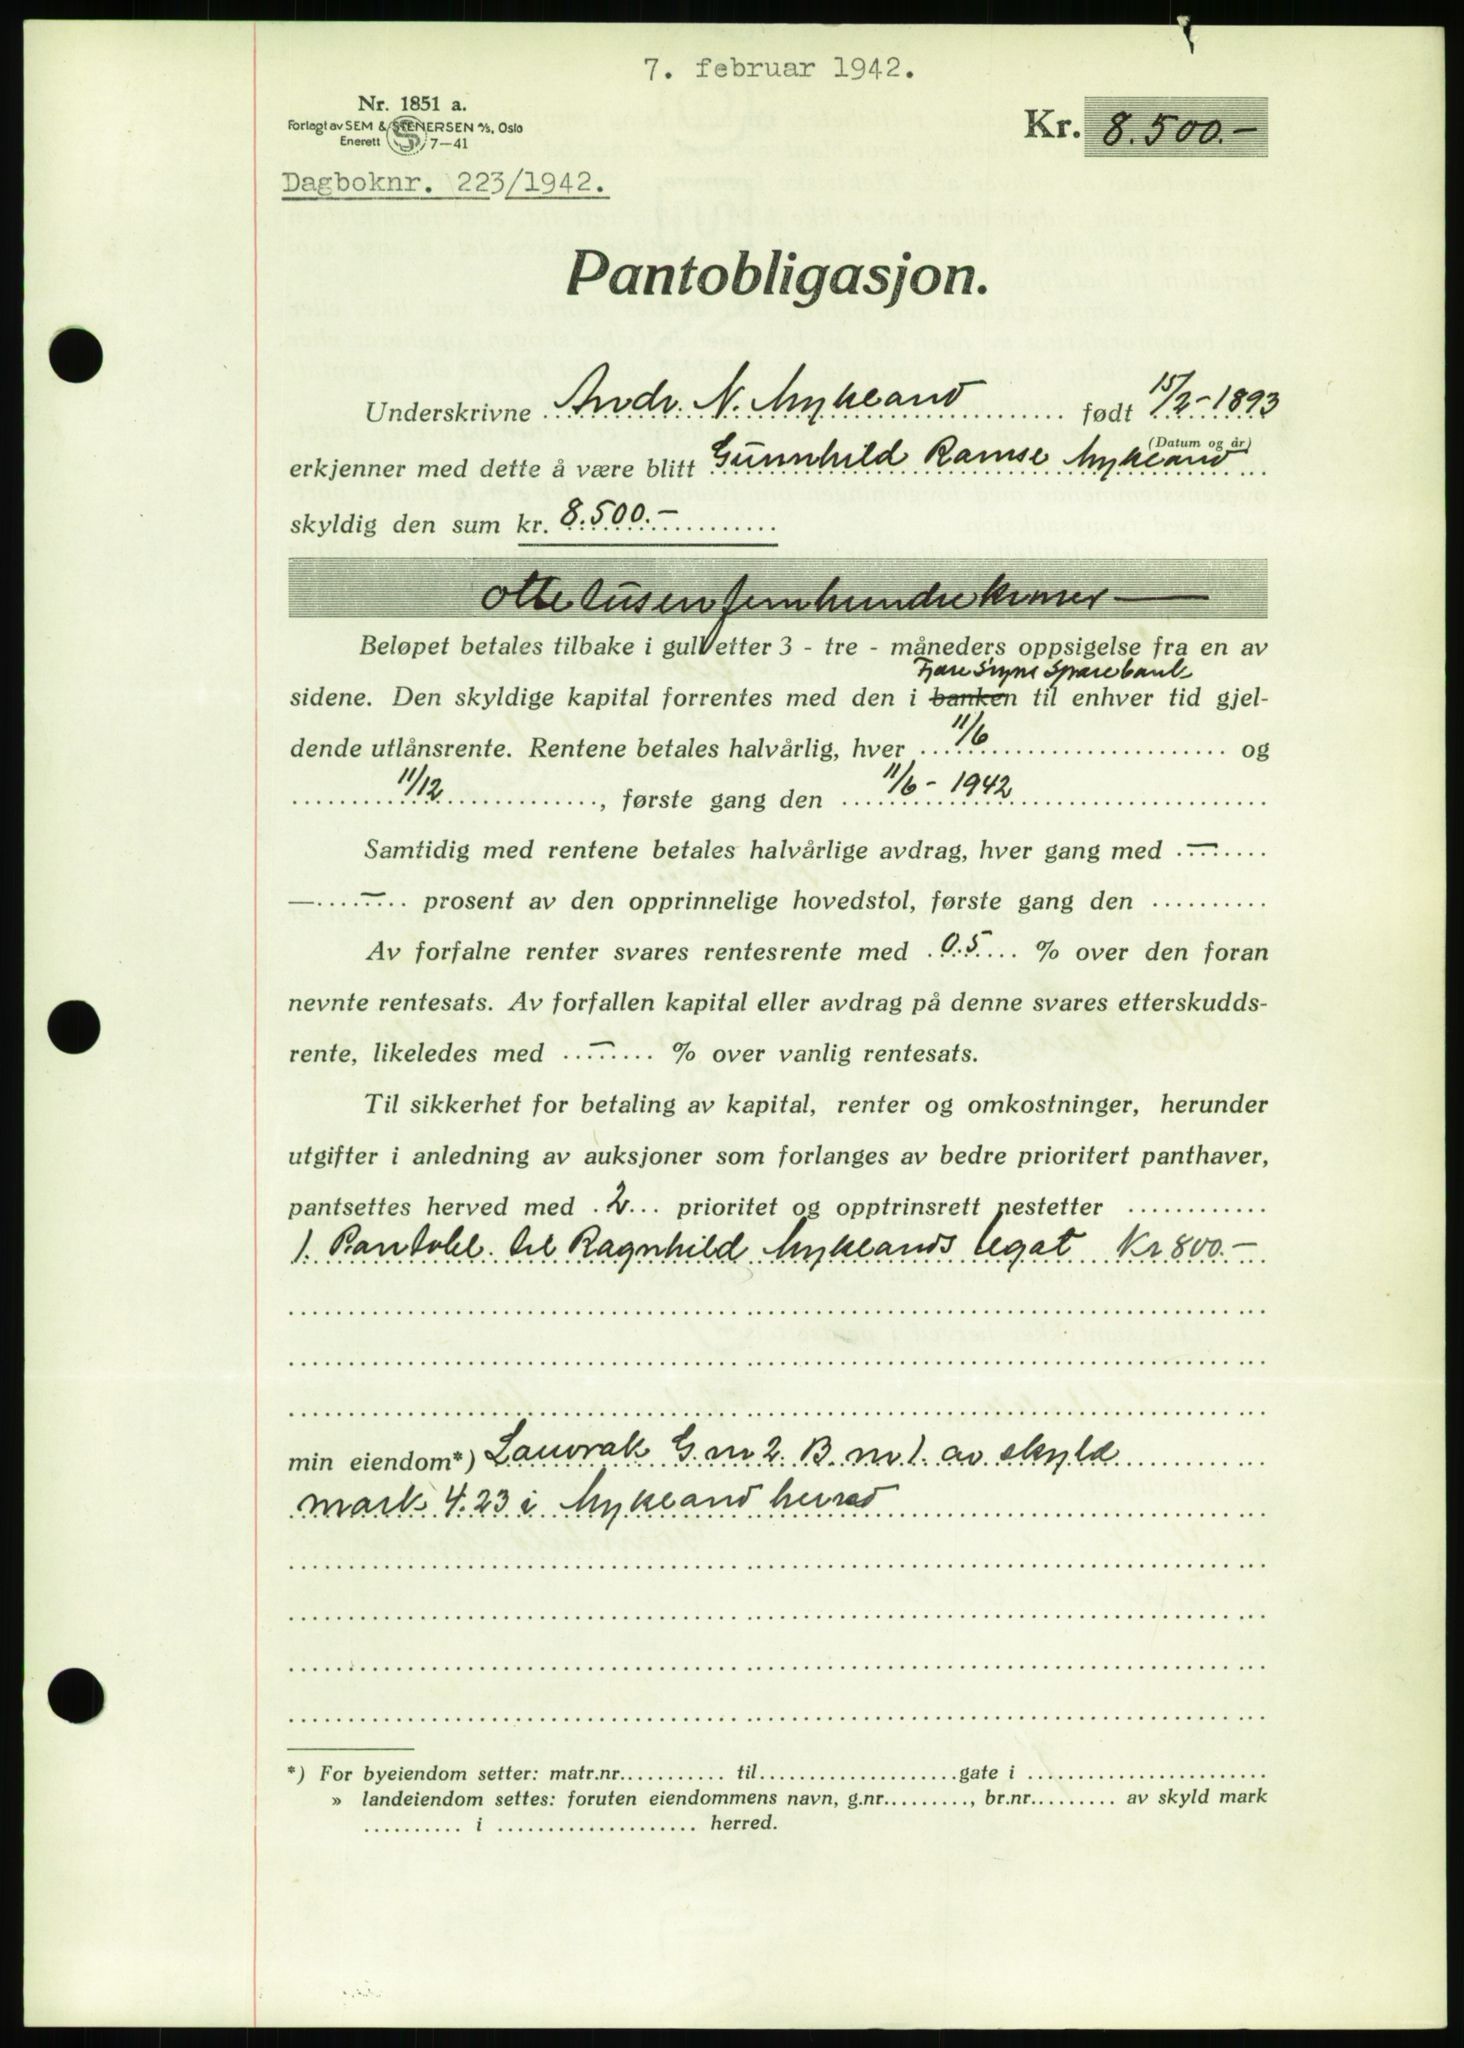 7. februar 1942.
Nr. 1851 a.
Forlagt av SEM & STENERSEN A/S, Oslo
Enerett S 7—41
Kr. 8.500.-
Dagboknr. 223/1942.
Pantobligasjon.
Underskrivne Andr. N. Mykland født 15/2-1893
(Datum og år)
erkjenner med dette å være blitt Gunnhild Ramse Mykland
skyldig den sum kr. 8.500.-
Otte tusen fem hundre kroner —
Beløpet betales tilbake i gull etter 3 - tre - måneders oppsigelse fra en av
sidene. Den skyldige kapital forrentes med den i banken til enhver tid gjel-
Sparebank
dende utlånsrente. Rentene betales halvårlig, hver 11/6 og
11/12, første gang den 11/6 - 1942
Samtidig med rentene betales halvårlige avdrag, hver gang med —
— — prosent av den opprinnelige hovedstol, første gang den
Av forfalne renter svares rentesrente med 0.5 % over den foran
nevnte rentesats. Av forfallen kapital eller avdrag på denne svares etterskudds-
rente, likeledes med — % over vanlig rentesats.
Til sikkerhet for betaling av kapital, renter og omkostninger, herunder
utgifter i anledning av auksjoner som forlanges av bedre prioritert panthaver,
pantsettes herved med 2 prioritet og opptrinsrett nestetter
1. Pantobl. til Ragnhild Myklands legat Kr 800.-
min eiendom*) Lauvrak G. nr 2. B. nr 1. av skyld
mark 4.23 i Mykland herred
*) For byeiendom setter: matr.nr. til gate i
» landeiendom settes: foruten eiendommens navn, g.nr., br.nr. av skyld mark
i herred.